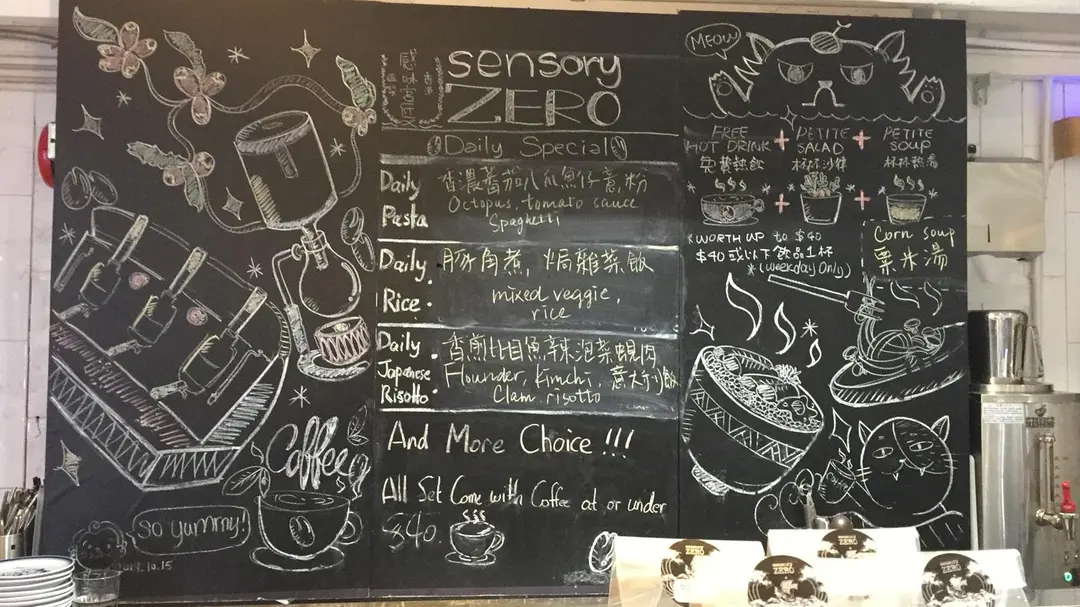 sensory
ZERO
Daily Special
Daily
Pasta
香濃蕃茄八爪魚仔意粉
Octopus, tomato sauce
Spaghetti
Daily
Rice
豚角煮, 焗雜菜飯
mixed veggie,
rice
Daily
Japanese
Risotto
香煎比目魚辣泡菜蜆肉
Flounder, Kimchi, 意大利飯
Clam risotto
And More Choice !!!
All Set Come with Coffee at or under
$40.
Coffee
So yummy!
MEOW
FREE HOT DRINK + PETITE SALAD + PETITE SOUP
免費熱飲 杯杯沙律 杯杯熱湯
*WORTH UP to $40
$40或以下飲品1杯
*(Weekday Only)
Corn soup
粟米湯
ZERO
ZERO
ZERO
ZERO